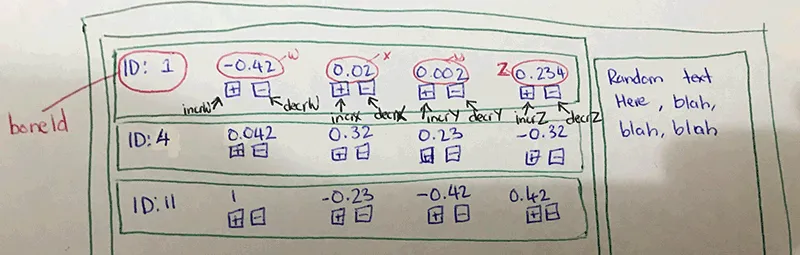 w x y
ID: 1 -0.42 0.02 0.002 z 0.234
+ - + - + - + -
boneId
incrW decrW incrX decrX incrY decrY incrZ decrZ
ID: 4 0.042 0.32 0.23 -0.32
+ - + - + - + -
ID: 11 1 -0.23 -0.42 0.42
+ - + - + - + -
Random text
Here, blah,
blah, blah